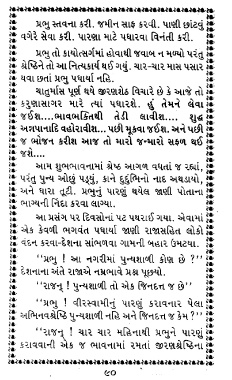 પ્રભુ સ્તવના કરી. જમીન સાફ કરવી. પાણી છાંટવું
વગેરે સેવા કરી. પારણા માટે પધારવા વિનંતી કરી.
પ્રભુ તો કાયોત્સર્ગમાં હોવાથી જવાબ ન મળ્યો પરંતુ
શ્રેષ્ઠિને તો આ નિત્યકાર્ય થઈ ગયું. ચાર-ચાર માસ પસાર
થવા છતાં પ્રભુ પધાર્યા નહિ.
ચાતુર્માસ પૂર્ણ થયે જીરણશેઠ વિચારે છે આજે તો
કરુણાસાગર મારે ત્યાં પધારશે. હું તેમને લેવા
જઈશ.... ભાવભક્તિથી તેડી લાવીશ.... શુદ્ધ
અશપાનાદિ વહોરાવીશ... પછી મૂકવા જઈશ. અને પછી
જ ભોજન કરીશ આજ તો મારો જન્મારો સફળ થઈ
જશે....
આમ શુભભાવનામાં શ્રેષ્ઠ આગળ વધતાં જ રહ્યાં,
પરંતુ પુન્ય ઓછું પડ્યું, કાને દુંદુભિનો નાદ અથડાયો,
અને ધારા તૂટી. પ્રભુનું પારણું થયેલ જાણી પોતાના
ભાગ્યની નિંદા કરવા લાગ્યા.
આ પ્રસંગ પર દિવસોનાં પટ પથરાઈ ગયા. એવામાં
એક કેવળી ભગવંત પધાર્યા જાણી રાજાસહિત લોકો
વંદન કરવા-દેશના સાંભળવા ગામની બહાર ઉમટયા.
''પ્રભુ ! આ નગરીમાં પુણ્યશાળી કોણ છે ?''
દેશનાના અંતે રાજાએ નમ્રભાવે પ્રશ્ન પૂછ્યો.
''રાજન્ ! પુન્યશાળી તો એક જિનદત્ત જ છે''
''પ્રભુ ! વીરસ્વામીનું પારણું કરાવનાર પેલા
અભિનવશ્રેષ્ઠિ પુન્યશાળી નહિ અને જિનદત્ત જ કેમ ?''
''રાજન્ ! ચાર ચાર મહિનાથી પ્રભુને પારણું
કરાવવાની એક જ ભાવનામાં રમતાં જીરણશ્રેષ્ઠિના
૯૦